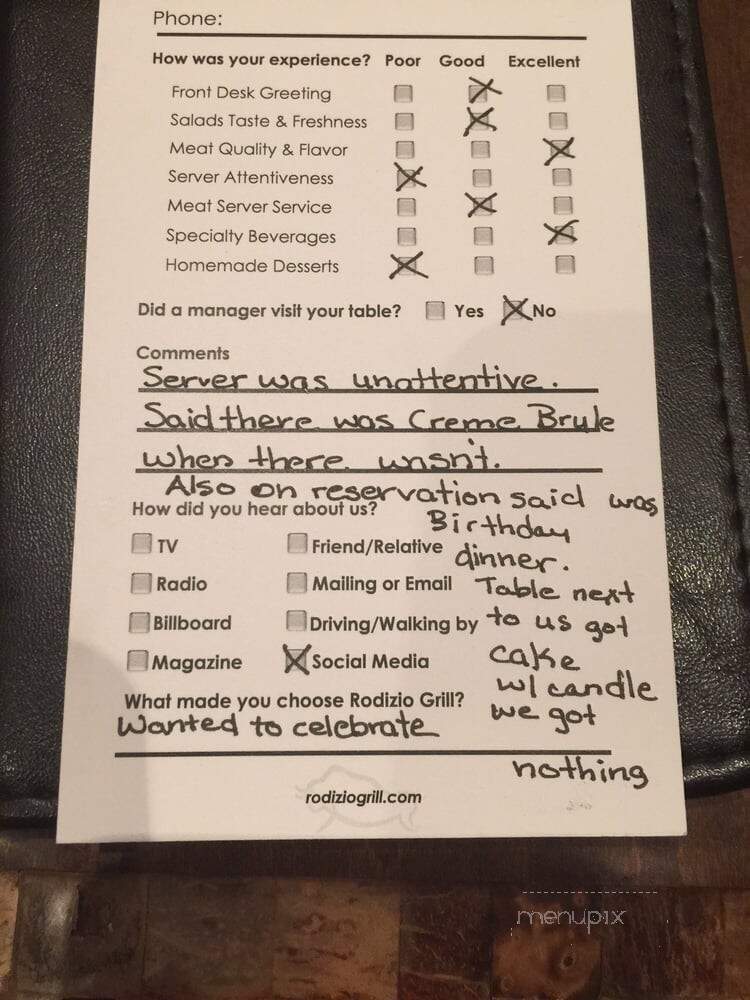 Phone:
How was your experience? Poor Good Excellent
Front Desk Greeting
Salads Taste & Freshness
Meat Quality & Flavor
Server Attentiveness
Meat Server Service
Specialty Beverages
Homemade Desserts
Did a manager visit your table? Yes No
Comments
Server was unattentive.
Said there was Creme Brule
when there wasn't.
Also on reservation said was
How did you hear about us? Birthday
TV Friend/Relative dinner.
Radio Mailing or Email Table next
Billboard Driving/Walking by to us got
Magazine Social Media cake
w/ candle
What made you choose Rodizio Grill? we got
Wanted to celebrate
nothing
rodiziogrill.com
menupix